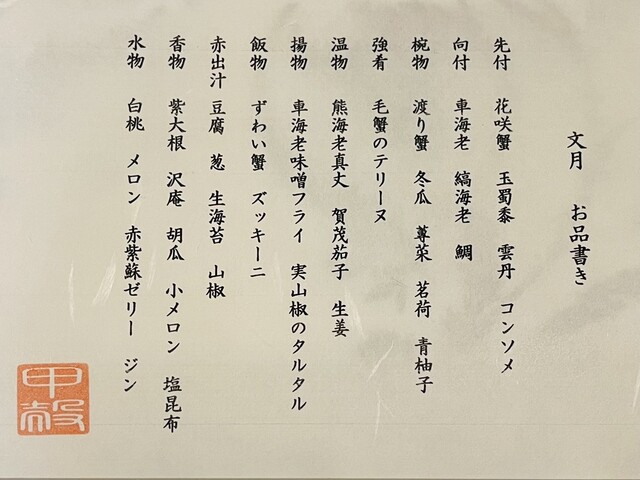 文月 お品書き
先付 花咲蟹 玉蜀黍 雲丹 コンソメ
向付 車海老 縞海老 鯛
椀物 渡り蟹 冬瓜 蓴菜 茗荷 青柚子
強肴 毛蟹のテリーヌ
温物 熊海老真丈 賀茂茄子 生姜
揚物 車海老味噌フライ 実山椒のタルタル
飯物 ずわい蟹 ズッキーニ
赤出汁 豆腐 葱 生海苔 山椒
香物 紫大根 沢庵 胡瓜 小メロン 塩昆布
水物 白桃 メロン 赤紫蘇ゼリー ジン
甲殻